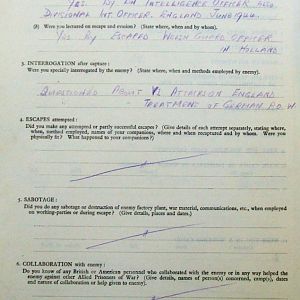 Yes. By an Intelligence Officer also
Divisional Int. Officer. England June 1944.
(b) Were you lectured on escape and evasion? (State where, when and by whom).
Yes By Escaped Welsh Guard Officer
in Holland
3. INTERROGATION after capture:
Were you specially interrogated by the enemy? (State where, when and methods employed by enemy).
Questioned About V1 Attacks on England
Treatment of German P.O.W.
4. ESCAPES attempted:
Did you make any attempted or partly successful escapes? (Give details of each attempt separately, stating where,
when, method employed, names of your companions, where and when recaptured and by whom. Were you
physically fit? What happened to your companions?)
5. SABOTAGE:
Did you do any sabotage or destruction of enemy factory plant, war material, communications, etc., when employed
on working-parties or during escape? (Give details, places and dates.)
6. COLLABORATION with enemy:
Do you know of any British or American personnel who collaborated with the enemy or in any way helped the
enemy against other Allied Prisoners of War? (Give details, names of person(s) concerned, camp(s), dates
and nature of collaboration or help given to enemy).